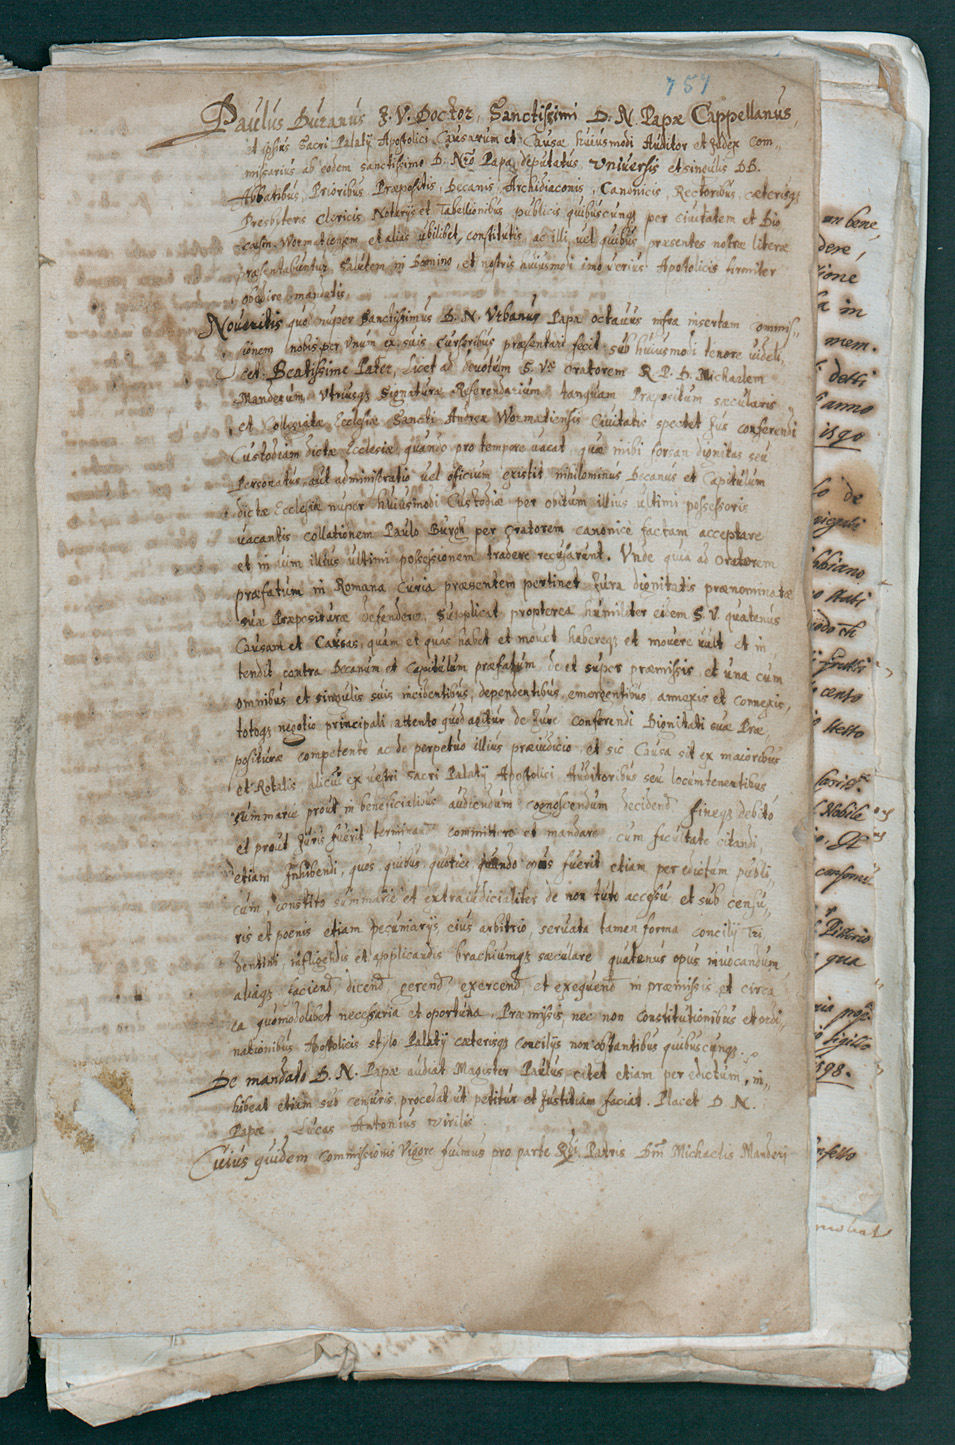 757
Paulus Duranus J. V. Doctor, Sanctissimi D. N. Papæ Cappellanus,
et ipsius Sacri Palatij Apostolici Causarum et Causæ huiusmodi Auditor et Judex com„
missarius ab eodem sanctissimo D. Nro Papa deputatus Universis et singulis DD.
Abbatibus, Prioribus, Præpositis, Decanis, Archidiaconis, Canonicis, Rectoribus, cæterisq3
Presbyteris Clericis Notarijs et Tabellionibus publicis quibuscunq3 per Civitatem et Dio
cesim Wormatiensem et alias ubilibet, constitutis, ac illi, vel quibus præsentes notræ literæ
præsentabuntur Salutem in Domino, et nostris huiusmodi imo verius Apostolicis firmiter
obedire mandatis.
Noveritis quod nuper Sanctissimus D. N. Vrbanus Papa octavus infra insertam commis„
sionem nobis per Vnum ex suis Cursoribus præsentari fecit sub huiusmodi tenore videli,
cet. Beatissime Pater, licet ad devotum S. Vræ oratorem R. P. D. Michaelem
Manderum, Vtriusq3 Signaturæ Referendarium, tanquam Præpositum sæcularis
et Collegiatæ Ecclesiæ Sancti Andreæ Wormatiensis Civitatis spectet Jus conferendi
Custodiam dictæ Ecclesiæ, quando pro tempore vacat, quæ inibi forsan dignitas seu
Personatus, aut administratio vel oficium existit nihilominus Decanus et Capitulum
dictæ Ecclesiæ nuper huiusmodi Custodiæ per obitum illius ultimi possessoris
vacantis collationem Paulo Burgh per oratorem canonice factam acceptare
et in eum illius ultimi possessionem tradere recusarunt. Vnde quia ad Oratorem
præfatum in Romana Curia præsentem pertinet Jura dignitatis prænominatæ
suæ Præposituræ defendere, Supplicat propterea humiliter eidem S. V. quatenus
Causam et Causas, quam et quas habet et movet habereq3 et movere vult et in„
tendit contra Decanum et Capitulum præfatum de et super præmissis, et una cum
omnibus et singulis suis incidentibus, dependentibus, emergentibus, annexis et connexis,
totoq3 negotio principali attento quod agitur de Jure conferendi Dignitati suæ Præ„
posituræ competente ac de perpetuo illius præiudicio, et sic Causa sit ex maioribus
et Rotalis alicui ex vestri Sacri Palatij Apostolici Auditoribus seu locumtenentibus
summarie prout in beneficialibus audiendum cognoscendum decidend fineq3 debito
et prout Juris fuerit terminan committere et mandare, cum facultate citandi,
etiam Inhibendi, quos, quibus quoties, quando opus fuerit etiam per edictum publi„
cum, constito summarie et extraiudicialiter de non tuto accessu, et sub censu„
ris et poenis etiam pecuniarijs, eius arbitrio, servata tamen forma concilij Tri
dentini infligendis et applicandis brachiumq3 sæculare, quatenus opus invocandum
aliaq3 faciend, dicend, gerend, exercend, et exequend in præmissis et circa
ea quomodolibet necessaria et oportuna. Præmissis, nec non Constitutionibus et ordi„
nationibus Apostolicis stylo Palatij cæterisq3 concilijs non obstantibus quibuscunq3.
De mandato D. N. Papæ audiat Magister Paulus, citet etiam per edictum, in„
hibeat etiam sub censuris, procedat ut petitur et Justitiam faciat. Placet D. N.
Papæ. Lucas Antonius Virilis.
Cuius quidem commissionis Vigore fuimus pro parte Rdi. Patris Dni Michaelis Manderj